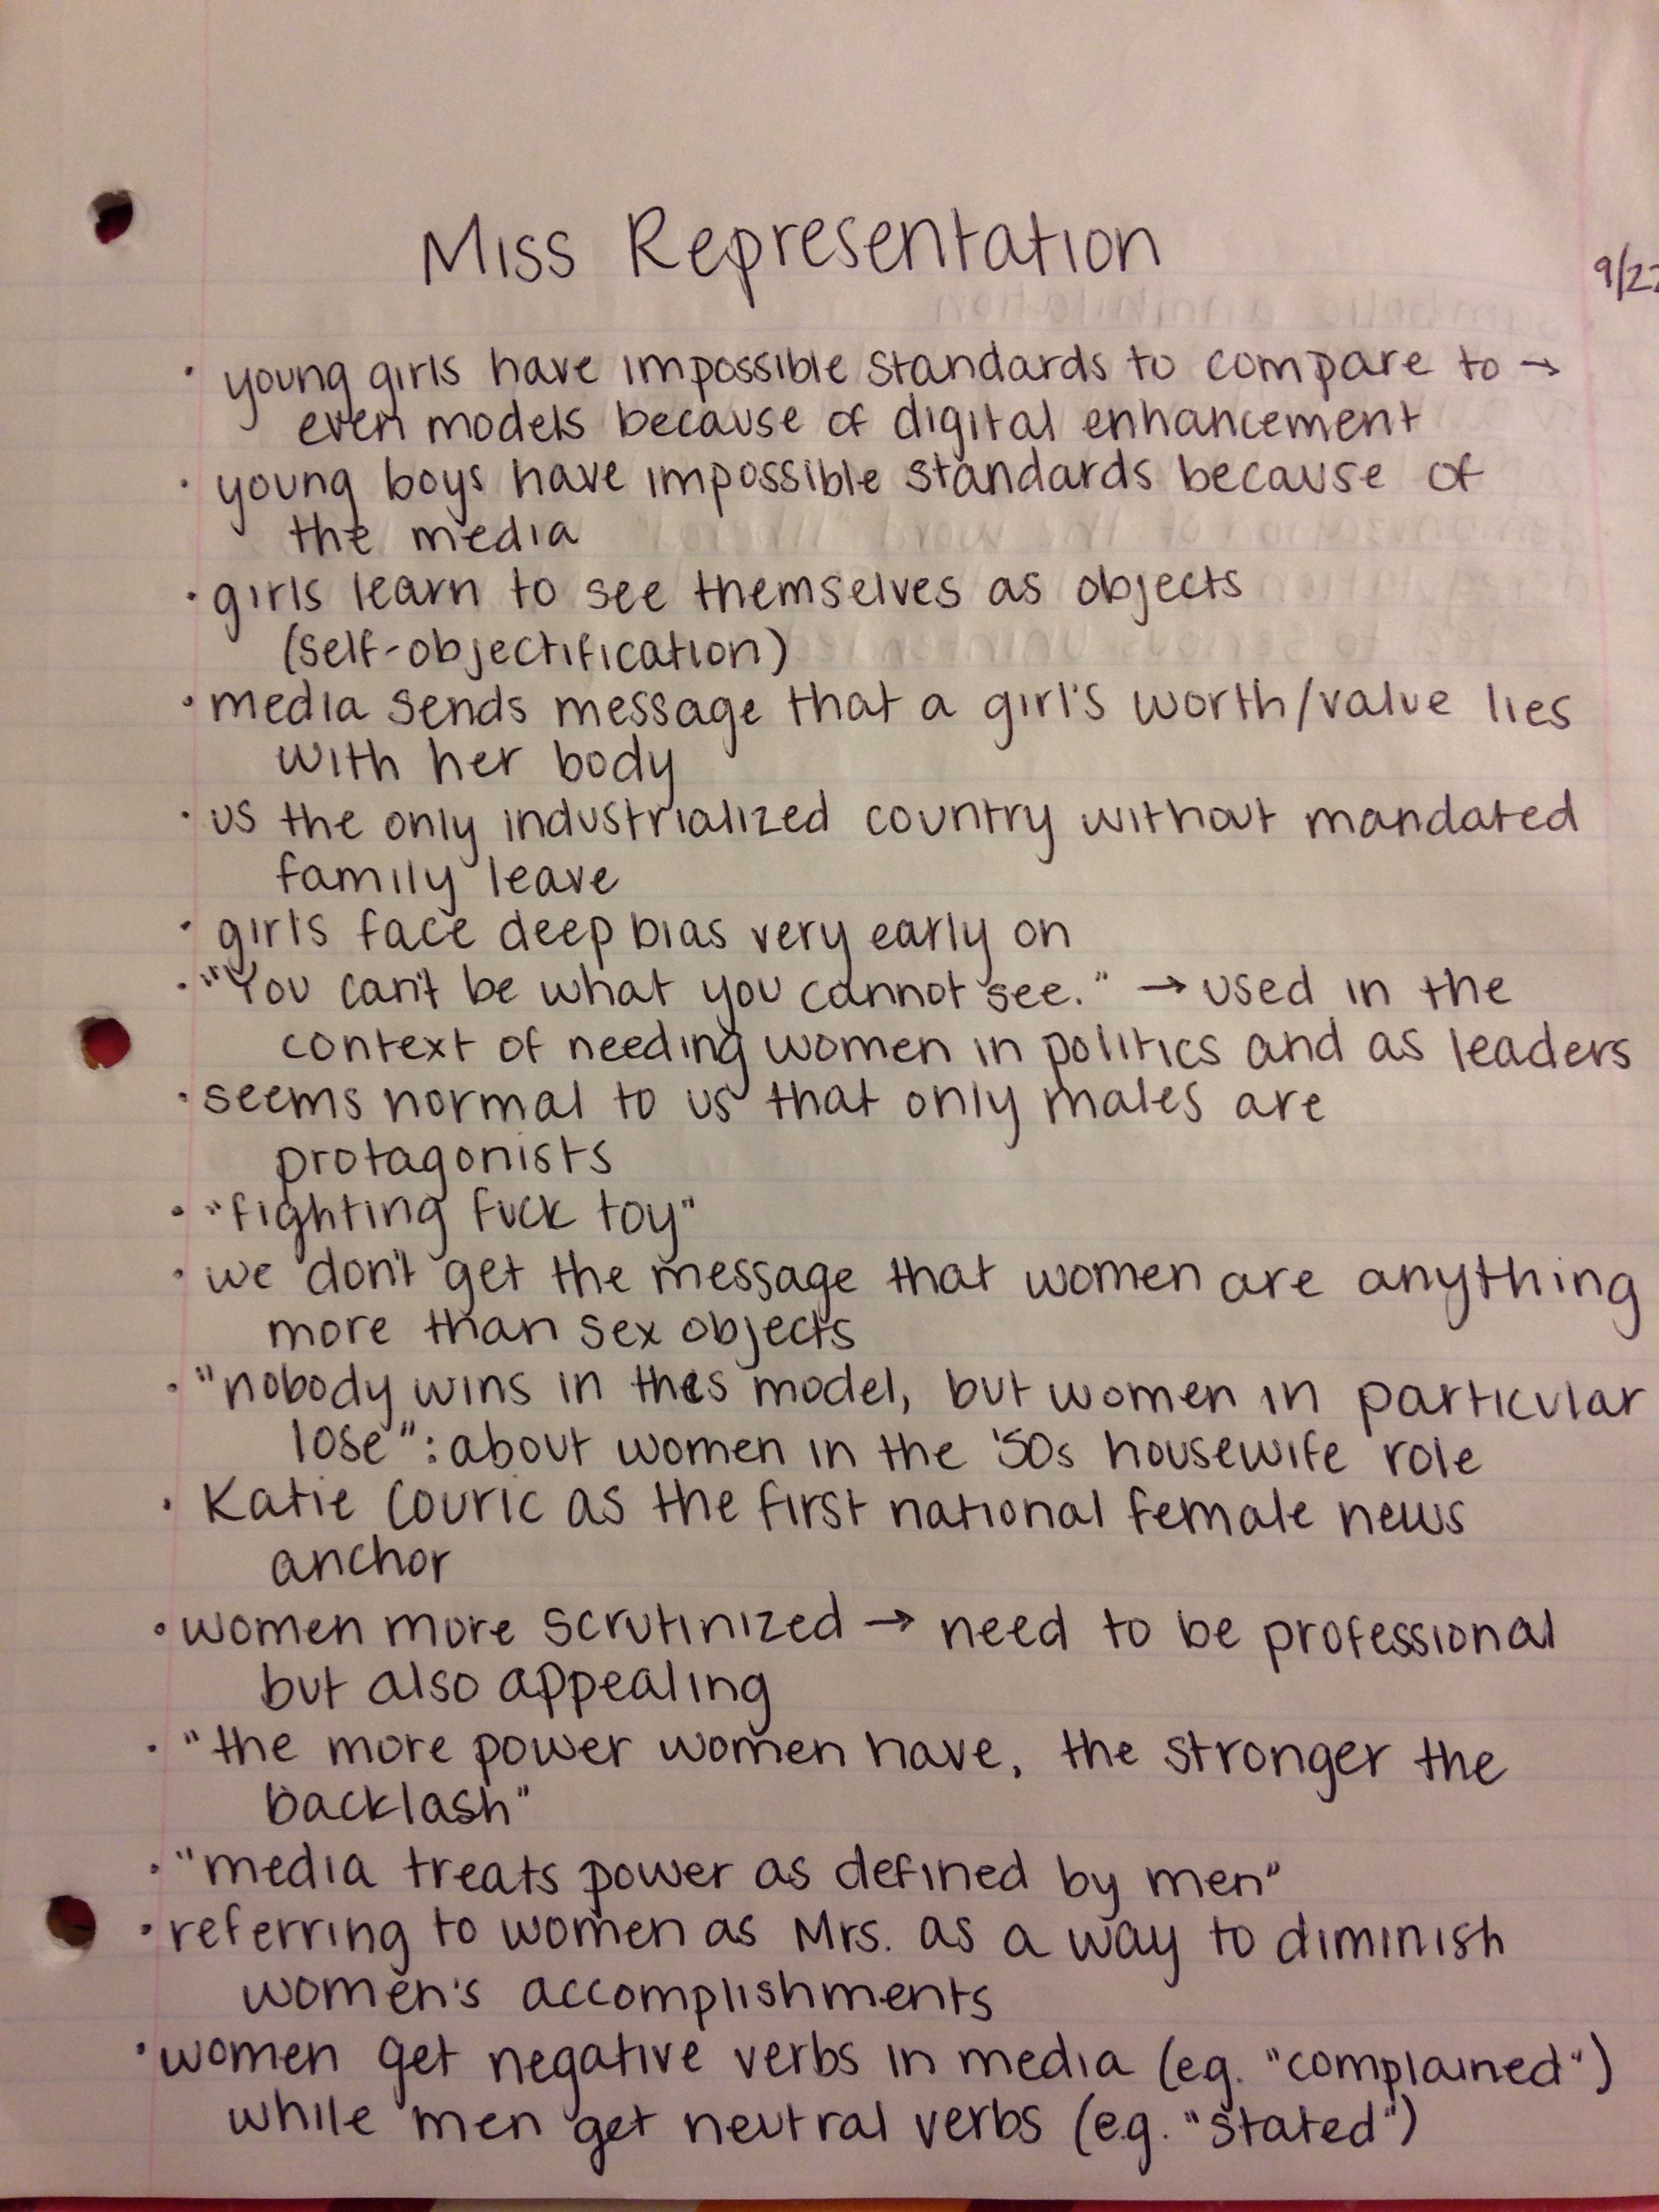 Miss Representation
9/22
· young girls have impossible standards to compare to →
even models because of digital enhancement
· young boys have impossible standards because of
the media
· girls learn to see themselves as objects
(self-objectification)
· media sends message that a girl's worth/value lies
with her body
· us the only industrialized country without mandated
family leave
· girls face deep bias very early on
· "You can't be what you cannot see." → used in the
context of needing women in politics and as leaders
· seems normal to us that only males are
protagonists
· "fighting fuck toy"
· we don't get the message that women are anything
more than sex objects
· "nobody wins in this model, but women in particular
lose": about women in the '50s housewife role
· Katie Couric as the first national female news
anchor
· women more scrutinized → need to be professional
but also appealing
· "the more power women have, the stronger the
backlash"
· "media treats power as defined by men"
· referring to women as Mrs. as a way to diminish
women's accomplishments
· women get negative verbs in media (e.g. "complained")
while men get neutral verbs (e.g. "stated")